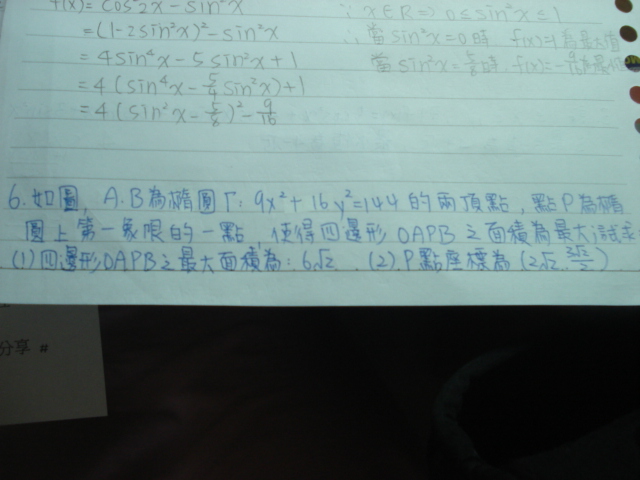 f(x)= cos²2x - sin²x
=(1-2sin²x)²-sin²x
=4sin⁴x-5sin²x+1
=4(sin⁴x-5/4sin²x)+1
=4(sin²x-5/8)²-9/16
∵x∈R⇒0≤sin²x≤1
∴當sin²x=0時 f(x)=1為最大值
當sin²x=5/8時 f(x)=-9/16
6.如圖, A.B為橢圓Γ: 9x²+16y²=144的兩頂點, 點P為橢
圓上第一象限的一點 使得四邊形OAPB之面積為最大試求
(1)四邊形OAPB之最大面積為: 6√2 (2)P點座標為(2√2, 3√2/2)
分享 #